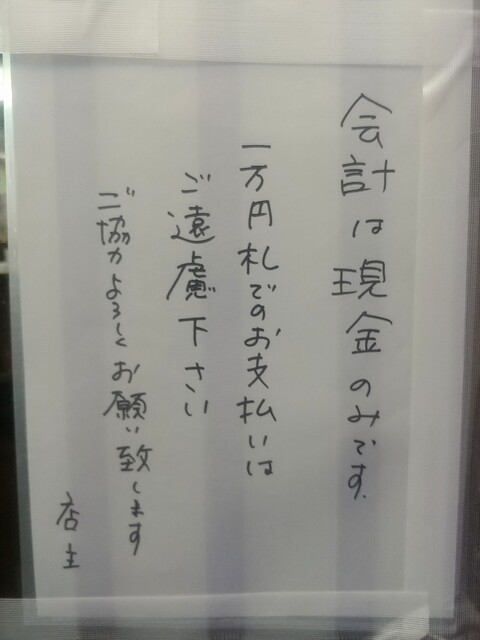 会計は現金のみです.
一万円札でのお支払いは
ご遠慮下さい
ご協力よろしくお願い致します
店主